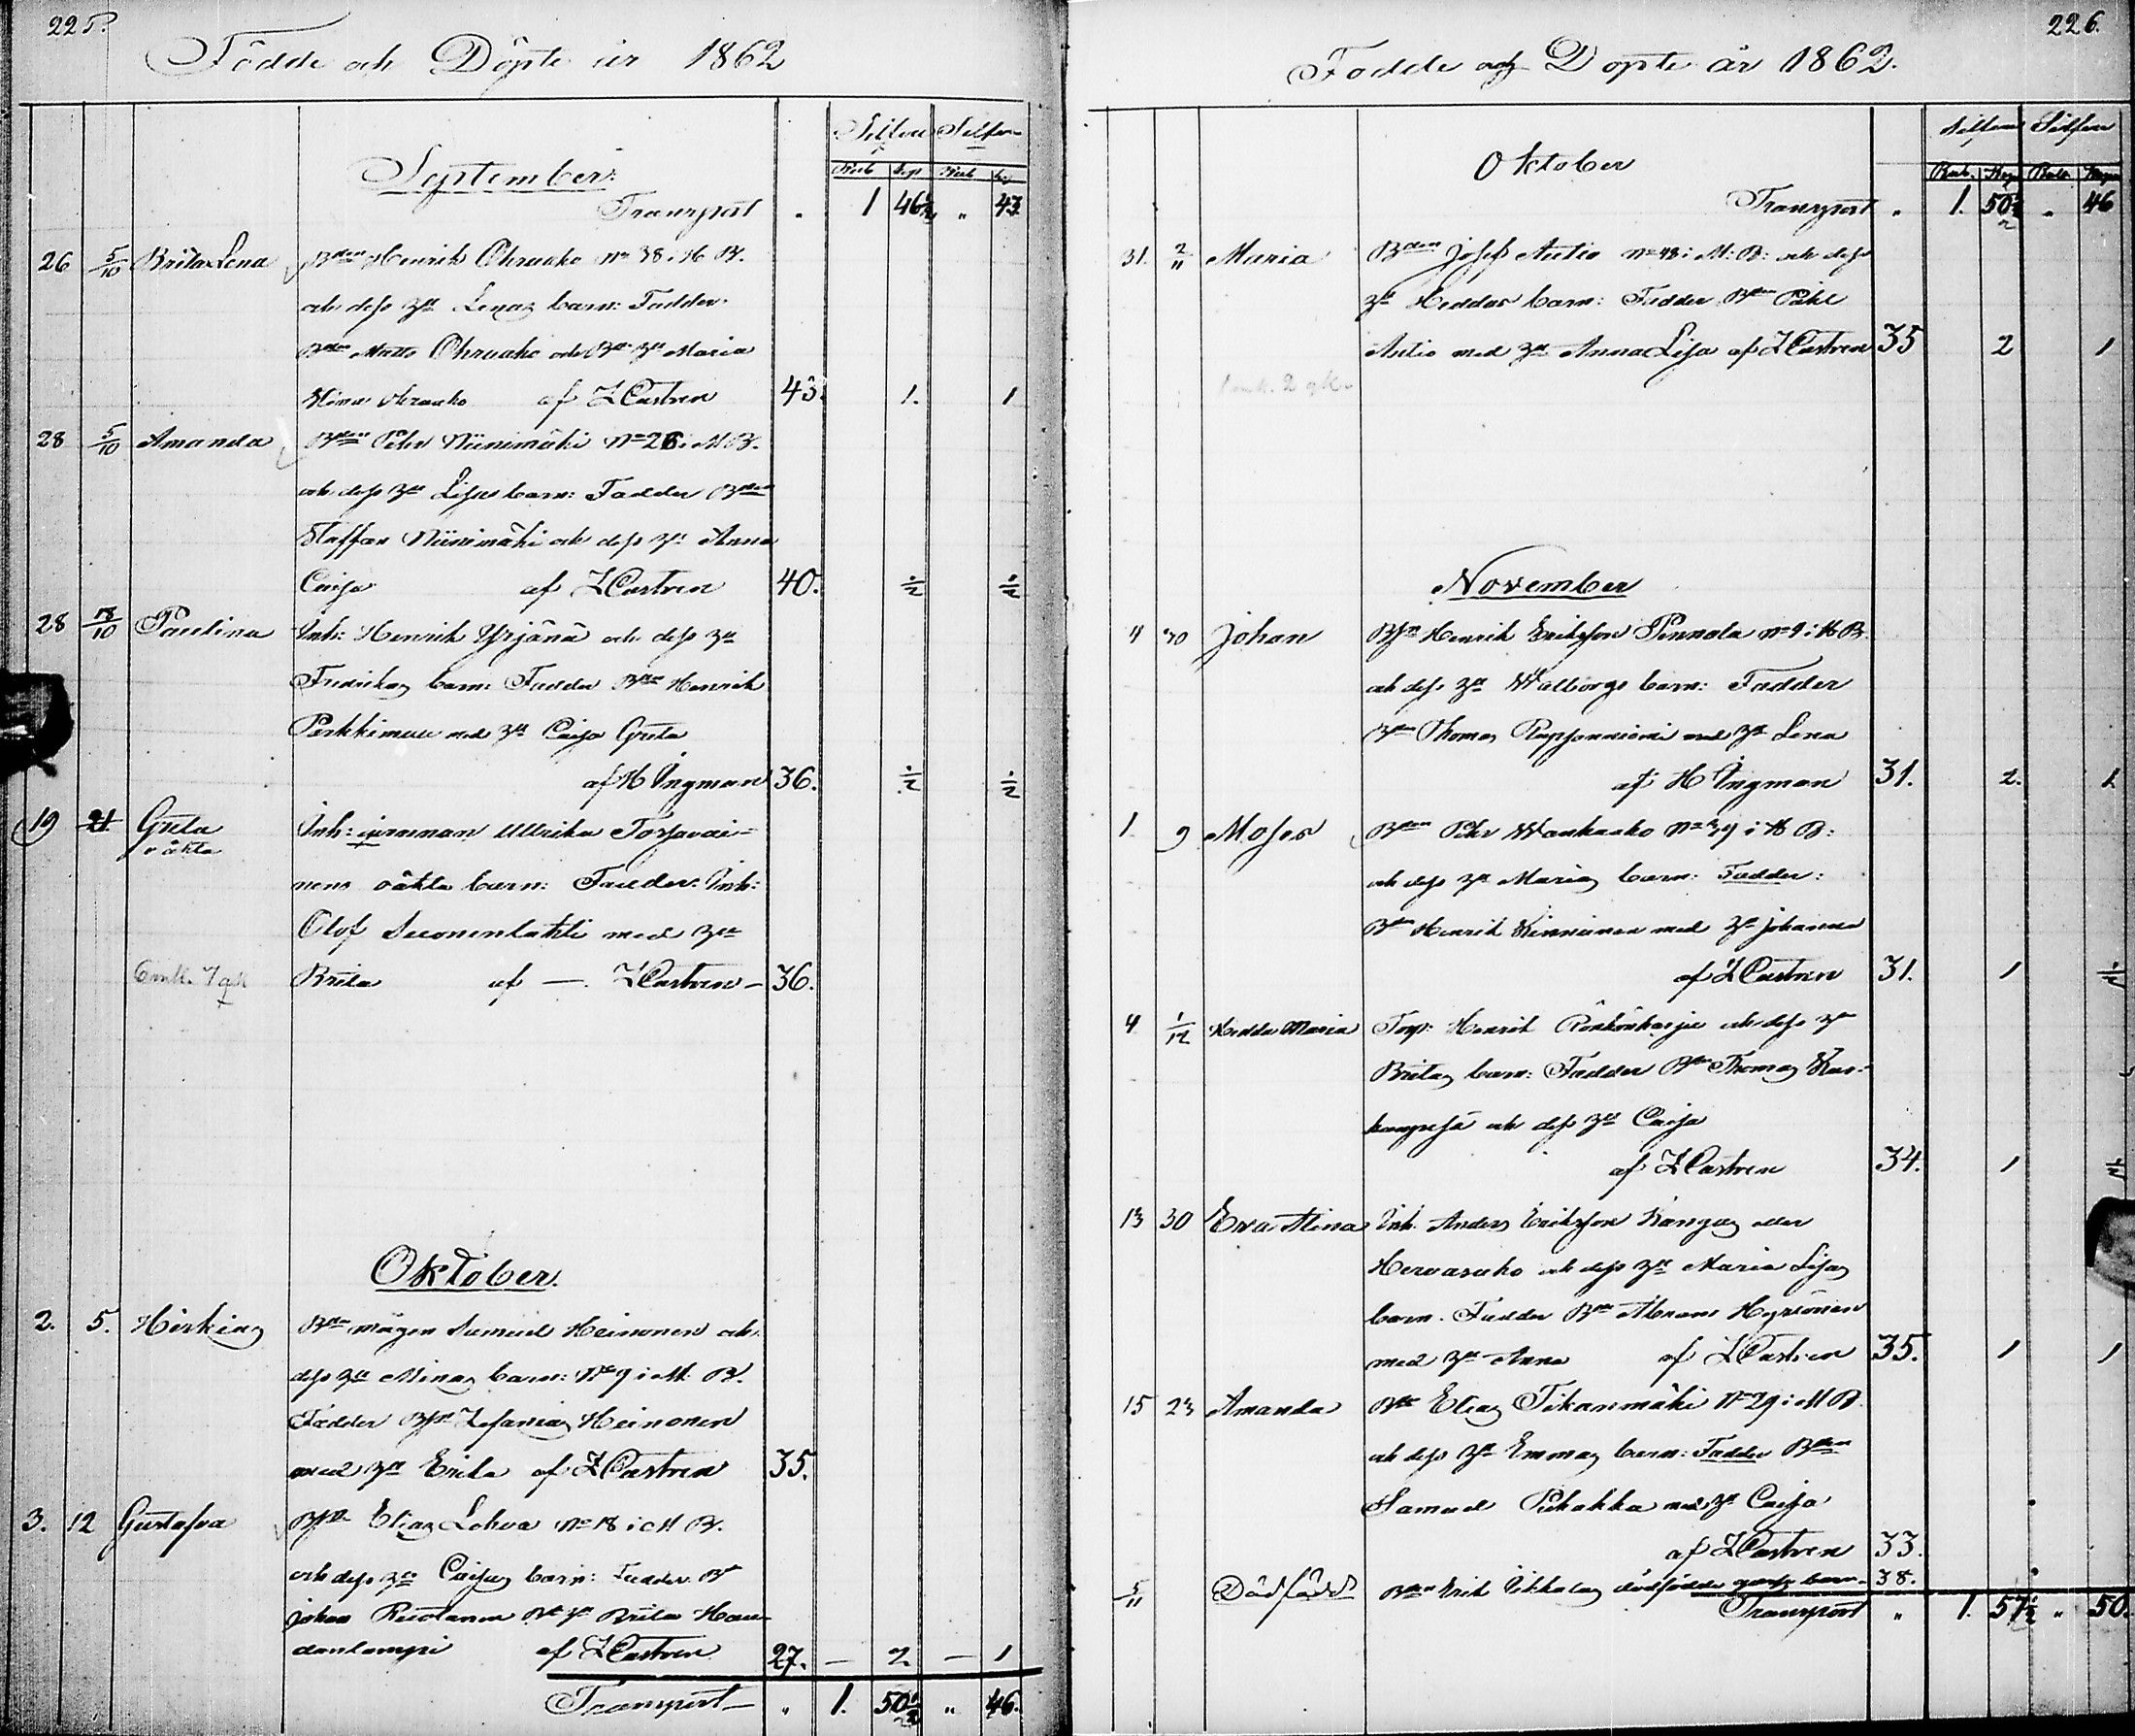 225.
Födde och Döpte år 1862
Silfver Silfver
Rub Kop Rub Kop
September:
Transport " 1 46½ " 43
26 5/10 Brita Lena Bden Henrik Ohraaho No 38 i H. B.
och dess Hu Lenas barn: Fadder
Bden Matts Ohraaho och Bde Hu Maria
Stina Ohraaho af Z Castren 43. 1. 1
28 5/10 Amanda Bden Pehr Niinimäki No 26 i M B.
och dess Hu Lisas barn: Fadder Bden
Staffan Niinimäki och dess Hu Anna
Caisa af Z Castren 40. ½ ½
28 18/10 Paulina Inh: Henrik Yrjänä och dess Hu
Fredrikas barn: Fadder Bden Henrik
Perkkimaa med Hu Caisa Greta
af H Ingman 36. ½ ½
19 21. Greta Inh: qvinnan Ullrika Torjavai-
oäkta
nens oäkta barn: Fadder: Inh:
Olof Suonenlahti med Hu
Brita af — Z Castren — 36.
6 mk. 7 qk
Oktober.
2. 5. Hiskias Bde mågen Samuel Heinonen och
dess Hu Minas barn: No 9 i M. B.
Fadder Bde Zefanias Heinonen
med Hu Erika af Z Castren 35.
3. 12 Gustafva Bde Elias Lohva No 18 i M B.
och dess Hu Caisas barn: Fadder Bde
Johan Ruotanen Bde Hu Brita Hau-
danlampi af Z Castren 27. — 2 — 1
Transport — " 1. 50½ " 46.
226.
Födde och Döpte år 1862.
Silfver Silfver
Rub. Kop Rub Kop
Oktober
Transport " 1. 50½ " 46
31. 2/11 Maria Bden Josef Autio No 48 i M: B: och dess
Hu Heddas barn: Fadder Bden Påhl
Autio med Hu Anna Lisa af Z Castren 35 2 1
1 mk. 2 qk.
November
11 30 Johan Bden Henrik Eriksson Pennala No 9 i H B.
och dess Hu Walborgs barn: Fadder
Bden Thomas med Hu Lena
af H Ingman 31. 2. 1
1. 9 Moses Bden Pehr Waahaaho No 49 i H B:
och dess Hu Marias barn: Fadder:
Bde Henrik Kinnunen med Hu Johanna
af Z Castren 31. 1 ½
4 1/12 Hedda Maria Torp: Henrik Rönkönharju och dess Hu
Britas barn: Fadder Bde Thomas Kus-
och dess Hu Caisa
af Z Castren 34. 1 ½
13 30 Eva Stina Inh. Anders Eriksson Kangas eller
Hervasuho och dess Hu Maria Lisas
barn. Fadder Bde Abram Hyrsönen
med Hu Anna af Z Castren 35. 1 1
15 23 Amanda Bde Elias Tikanmäki No 29 i M B.
och dess Hu Emmas barn: Fadder Bden
Samuel Pikakka med Hu Caisa
af Z Castren 33.
5/11 Dödfödd Bden Erik Tikkalas dödfödda gosse barn. 38.
Transport " 1. 57½ " 50.